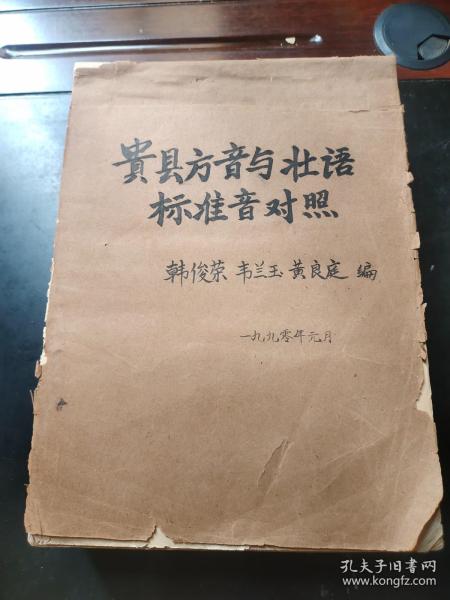 貴县方音与壮语
标准音对照
韩俊荣 韦兰玉 黄良庭 编
一九九零年元月
孔夫子旧书网
www.kongfz.com